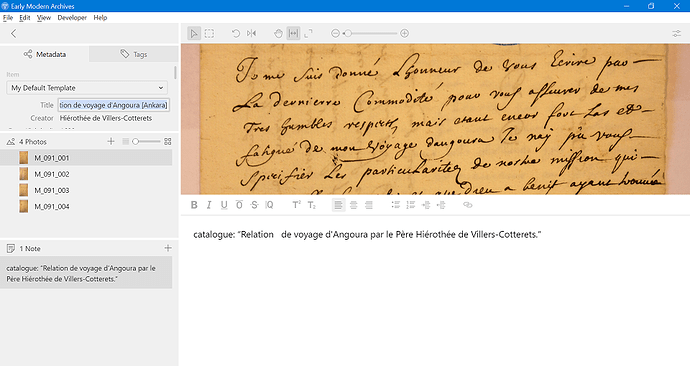 Early Modern Archives
File Edit View Developer Help
Metadata
Tags
Item
My Default Template
Title tion de voyage d'Angoura [Ankara]
Creator Hiérothée de Villers-Cotterets
4 Photos
M_091_001
M_091_002
M_091_003
M_091_004
1 Note
catalogue: "Relation de voyage d'Angoura par le
Père Hiérothée de Villers-Cotterets."
Je me suis donné Lhonneur de vous Ecrire par
La dernierre Commodité pour vous assurer de mes
Tres humbles respects, mais etant encor fort Las et
fatigué de mon voyage daugoura Je nay pu vous
spicifier Les particularitez de nostre mission qui
dieu a benit ayant trouvé
B I U O S Q T² T₂
catalogue: "Relation de voyage d'Angoura par le Père Hiérothée de Villers-Cotterets."